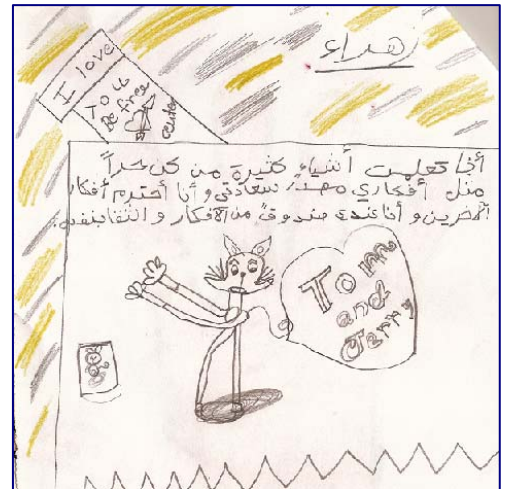 زهراء
I love
To u
Be free
center
أنا تعلمت أشياء كثيرة من كن حراً
مثل أفكاري سعادتي وأنا أحترم أفكار
الآخرين وأنا عندي صندوق من الأفكار و
Tom
and
Jerry